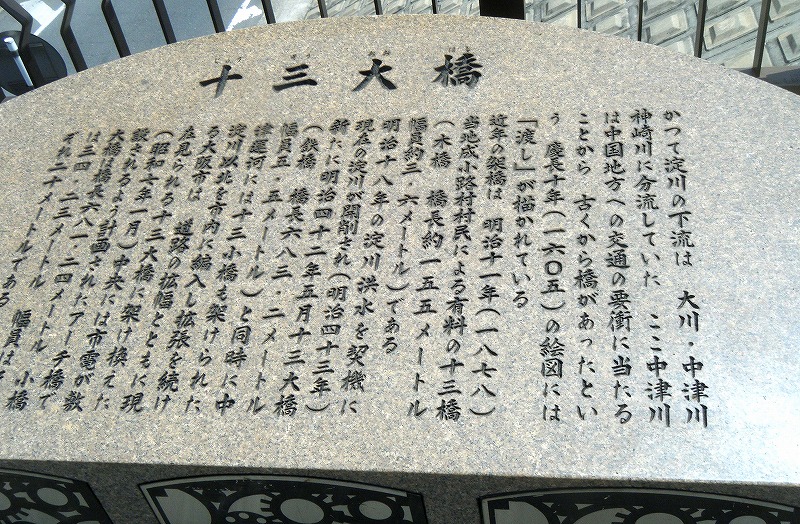 十三大橋
かつて淀川の下流は　大川・中津川
神崎川に分流していた　ここ中津川
は中国地方への交通の要衝に当たる
ことから　古くから橋があったとい
う　慶長十年（一六〇五）の絵図には
「渡し」が描かれている
近年の架橋は　明治十一年（一八七八）
当地成小路村村民による有料の十三橋
（木橋　橋長約一五五メートル
幅員約三・六メートル）である
明治十八年の淀川洪水を契機に
現在の淀川が開削され（明治四十三年）
新たに明治四十二年五月十三大橋
（鉄橋　橋長六八三・二メートル
幅員五・五メートル）と同時に中
津運河には十三小橋も架けられた
淀川以北を市内に編入し拡張を続け
る大阪市は　道路の拡幅とともに現
在見られる十三大橋に架け換えた
（昭和七年一月）中央には市電が敷
設されるよう計画されたアーチ橋で
大橋は橋長六八一・二四メートル　小橋
は三四・二三メートル　幅員は
ぞれ二十メートルである